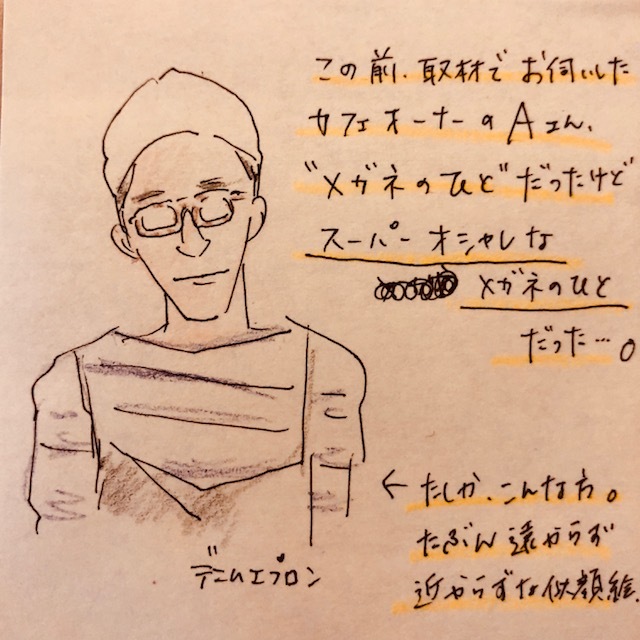 この前、取材でお伺いした
カフェオーナーのAさん、
"メガネのひと"だったけど
スーパーオシャレな
メガネのひと
だった…。
←たしか、こんな方。
たぶん遠からず
近からずな似顔絵。
デニムエプロン